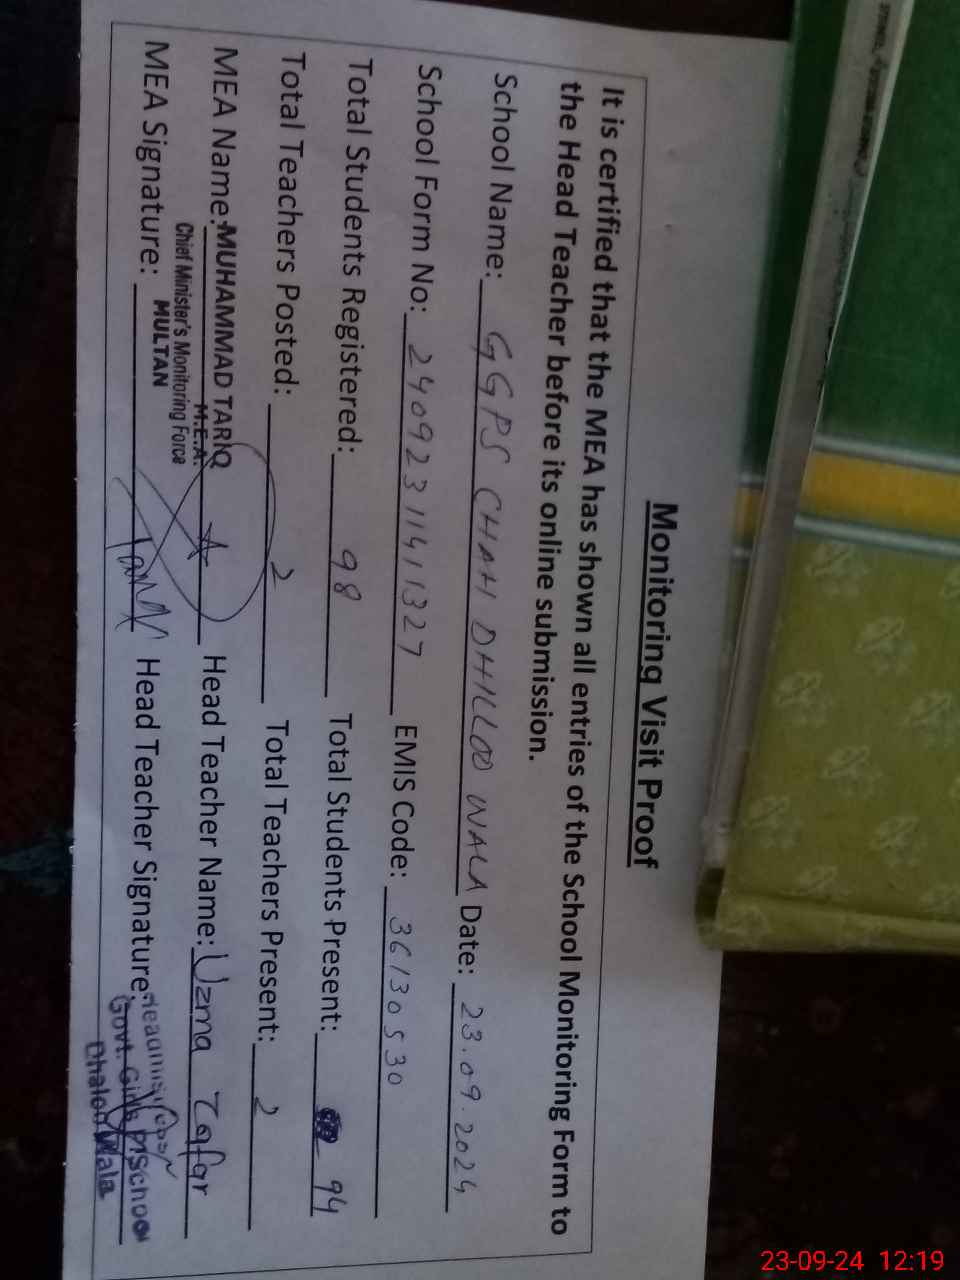 Monitoring Visit Proof
It is certified that the MEA has shown all entries of the School Monitoring Form to
the Head Teacher before its online submission.
School Name: GGPS CHAH DHILLOO WALA Date: 23.09.2024
School Form No: 24092311411327 EMIS Code: 36130530
Total Students Registered: 98 Total Students Present: 94
Total Teachers Posted: 2 Total Teachers Present: 2
MEA Name: MUHAMMAD TARIQ Head Teacher Name: Uzma Zafar
M.E.A.
Chief Minister's Monitoring Force
MULTAN
MEA Signature: Tariq Head Teacher Signature:
Govt. Girls P/School
Dhalon Wala
23-09-24 12:19